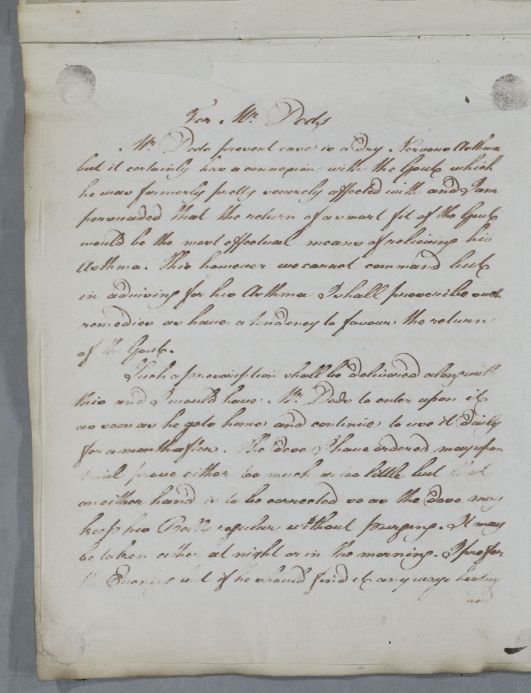 For Mr. Dods
Mr. Dods present case is a dry Nervous Asthma
but it certainly has a connexion with the Gout which
he was formerly pretty severely affected with and I am
persuaded that the return of a smart fit of the Gout
would be the most effectual means of relieving his
Asthma. This however we cannot command but
in advising for his Asthma I shall prescribe such
remedies as have a tendency to favour the return
of the Gout.
Such a prescription shall be delivered along with
this and I would have Mr. Dods to enter upon it
as soon as he gets home and continue to use it daily
for a month after. The dose I have ordered may upon
trial prove either too much or too little but that
on either hand is to be corrected so as the dose may
keep his Belly regular without purging. It may
be taken either at night or in the morning. I prefer
the Evening but if he should find it any ways heating
and